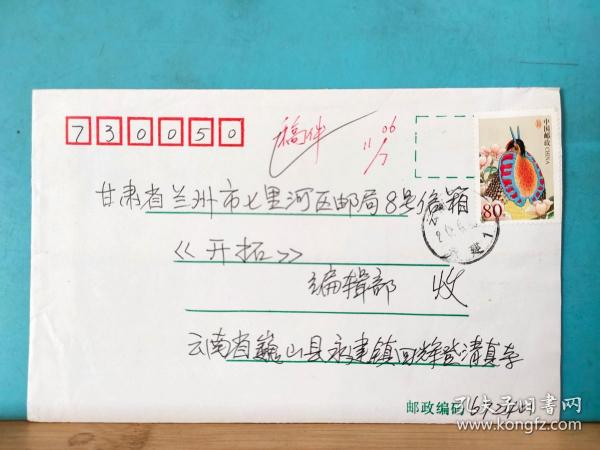 730050
稿件
06
11/7
中国邮政 CHINA
80
甘肃省兰州市七里河区邮局8号信箱
《开拓》
编辑部 收
云南省巍山县永建镇回辉登清真寺
邮政编码
孔夫子旧书网
www.kongfz.com